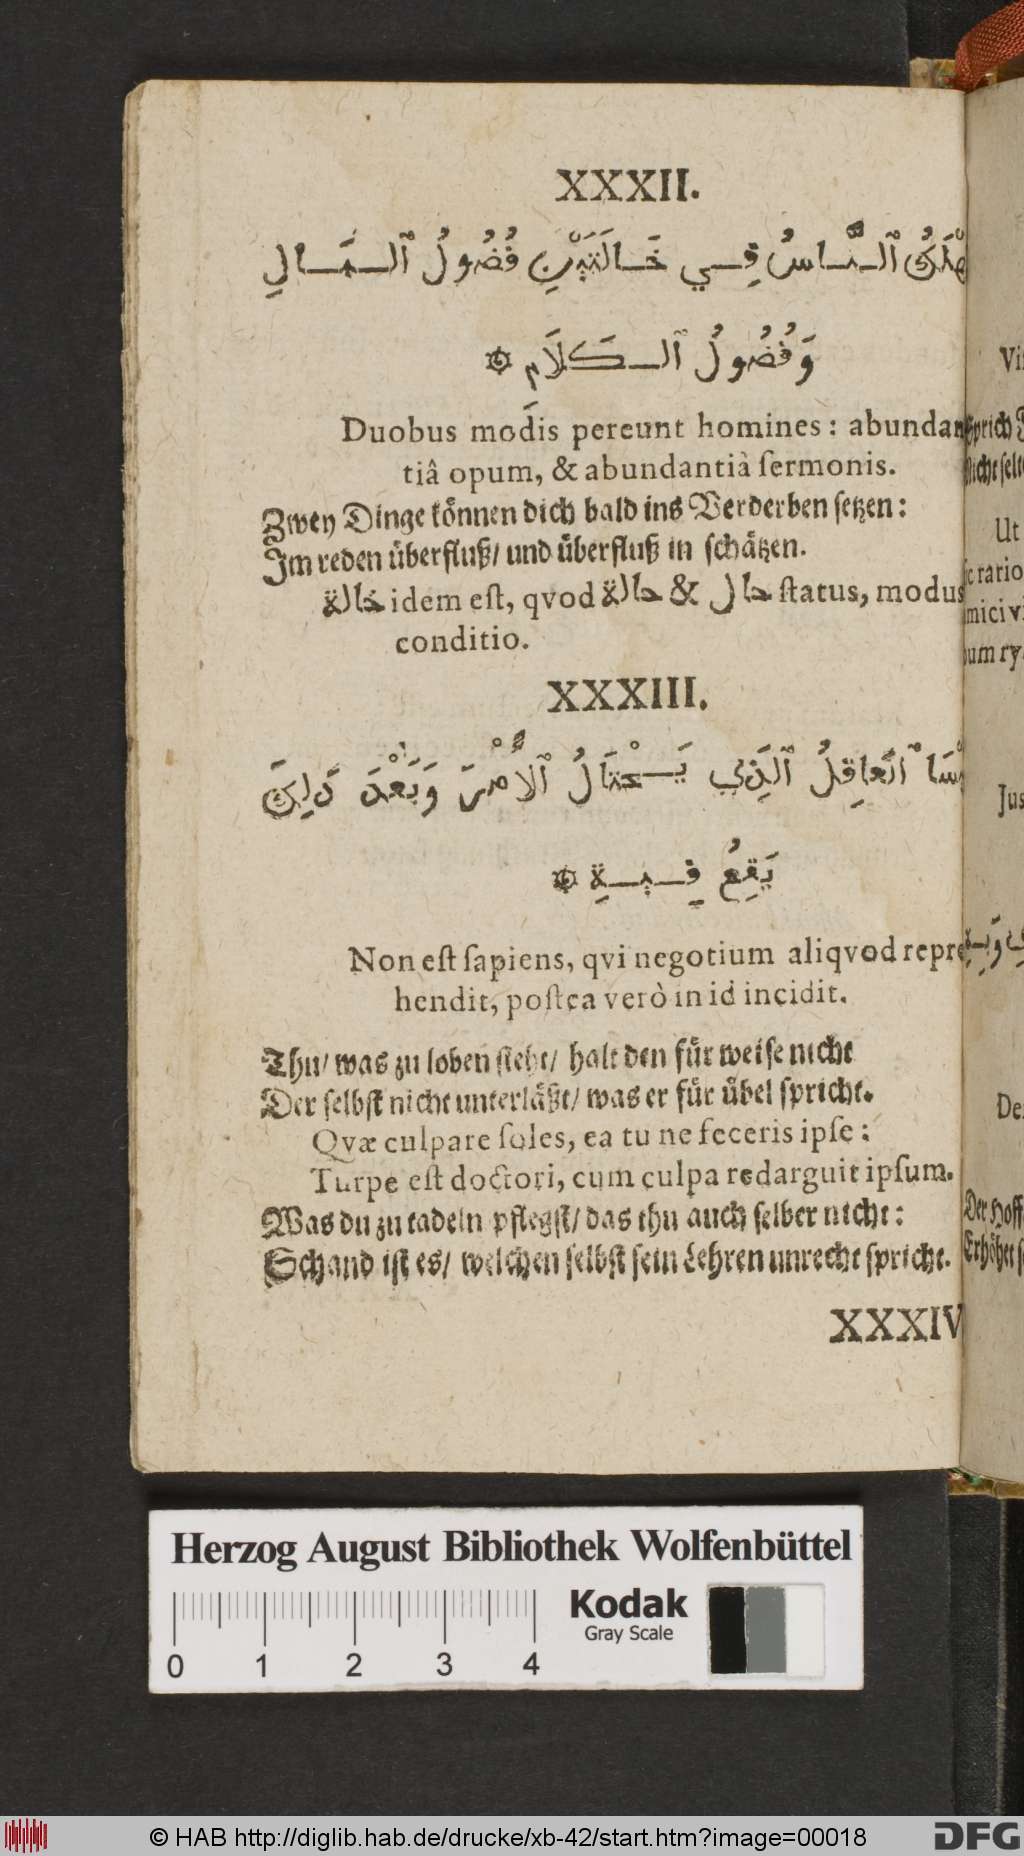 XXXII.
اَلنَّاسُ فِي خَالَتَيْنِ فُضُولُ اَلْمَالِ
وَفُضُولُ اَلْكَلَامِ ۞
Duobus modis pereunt homines: abundan
tiâ opum, & abundantiâ ſermonis.
Zwey Dinge koͤnnen dich bald ins Verderben ſetzen:
Im reden uͤberfluß/ und uͤberfluß in ſchaͤtzen.
خالة idem eſt, qvod حالة & حال ſtatus, modus
conditio.
XXXIII.
اَلَّذِي
يَقَعُ فِيهِ ۞
Non eſt ſapiens, qvi negotium aliqvod repre
hendit, poſtea verò in id incidit.
Thu/ was zu loben ſteht/ halt den fuͤr weiſe nicht
Der ſelbſt nicht unterlaͤßt/ was er fuͤr uͤbel ſpricht.
Qvæ culpare ſoles, ea tu ne feceris ipſe:
Turpe eſt doctori, cum culpa redarguit ipſum.
Was du zu tadeln pflegſt/ das thu auch ſelber nicht:
Schand iſt es/ welchen ſelbſt ſein Lehren unrecht ſpricht.
XXXIV
Herzog August Bibliothek Wolfenbüttel
Kodak
Gray Scale
0 1 2 3 4
© HAB http://diglib.hab.de/drucke/xb-42/start.htm?image=00018
DFG